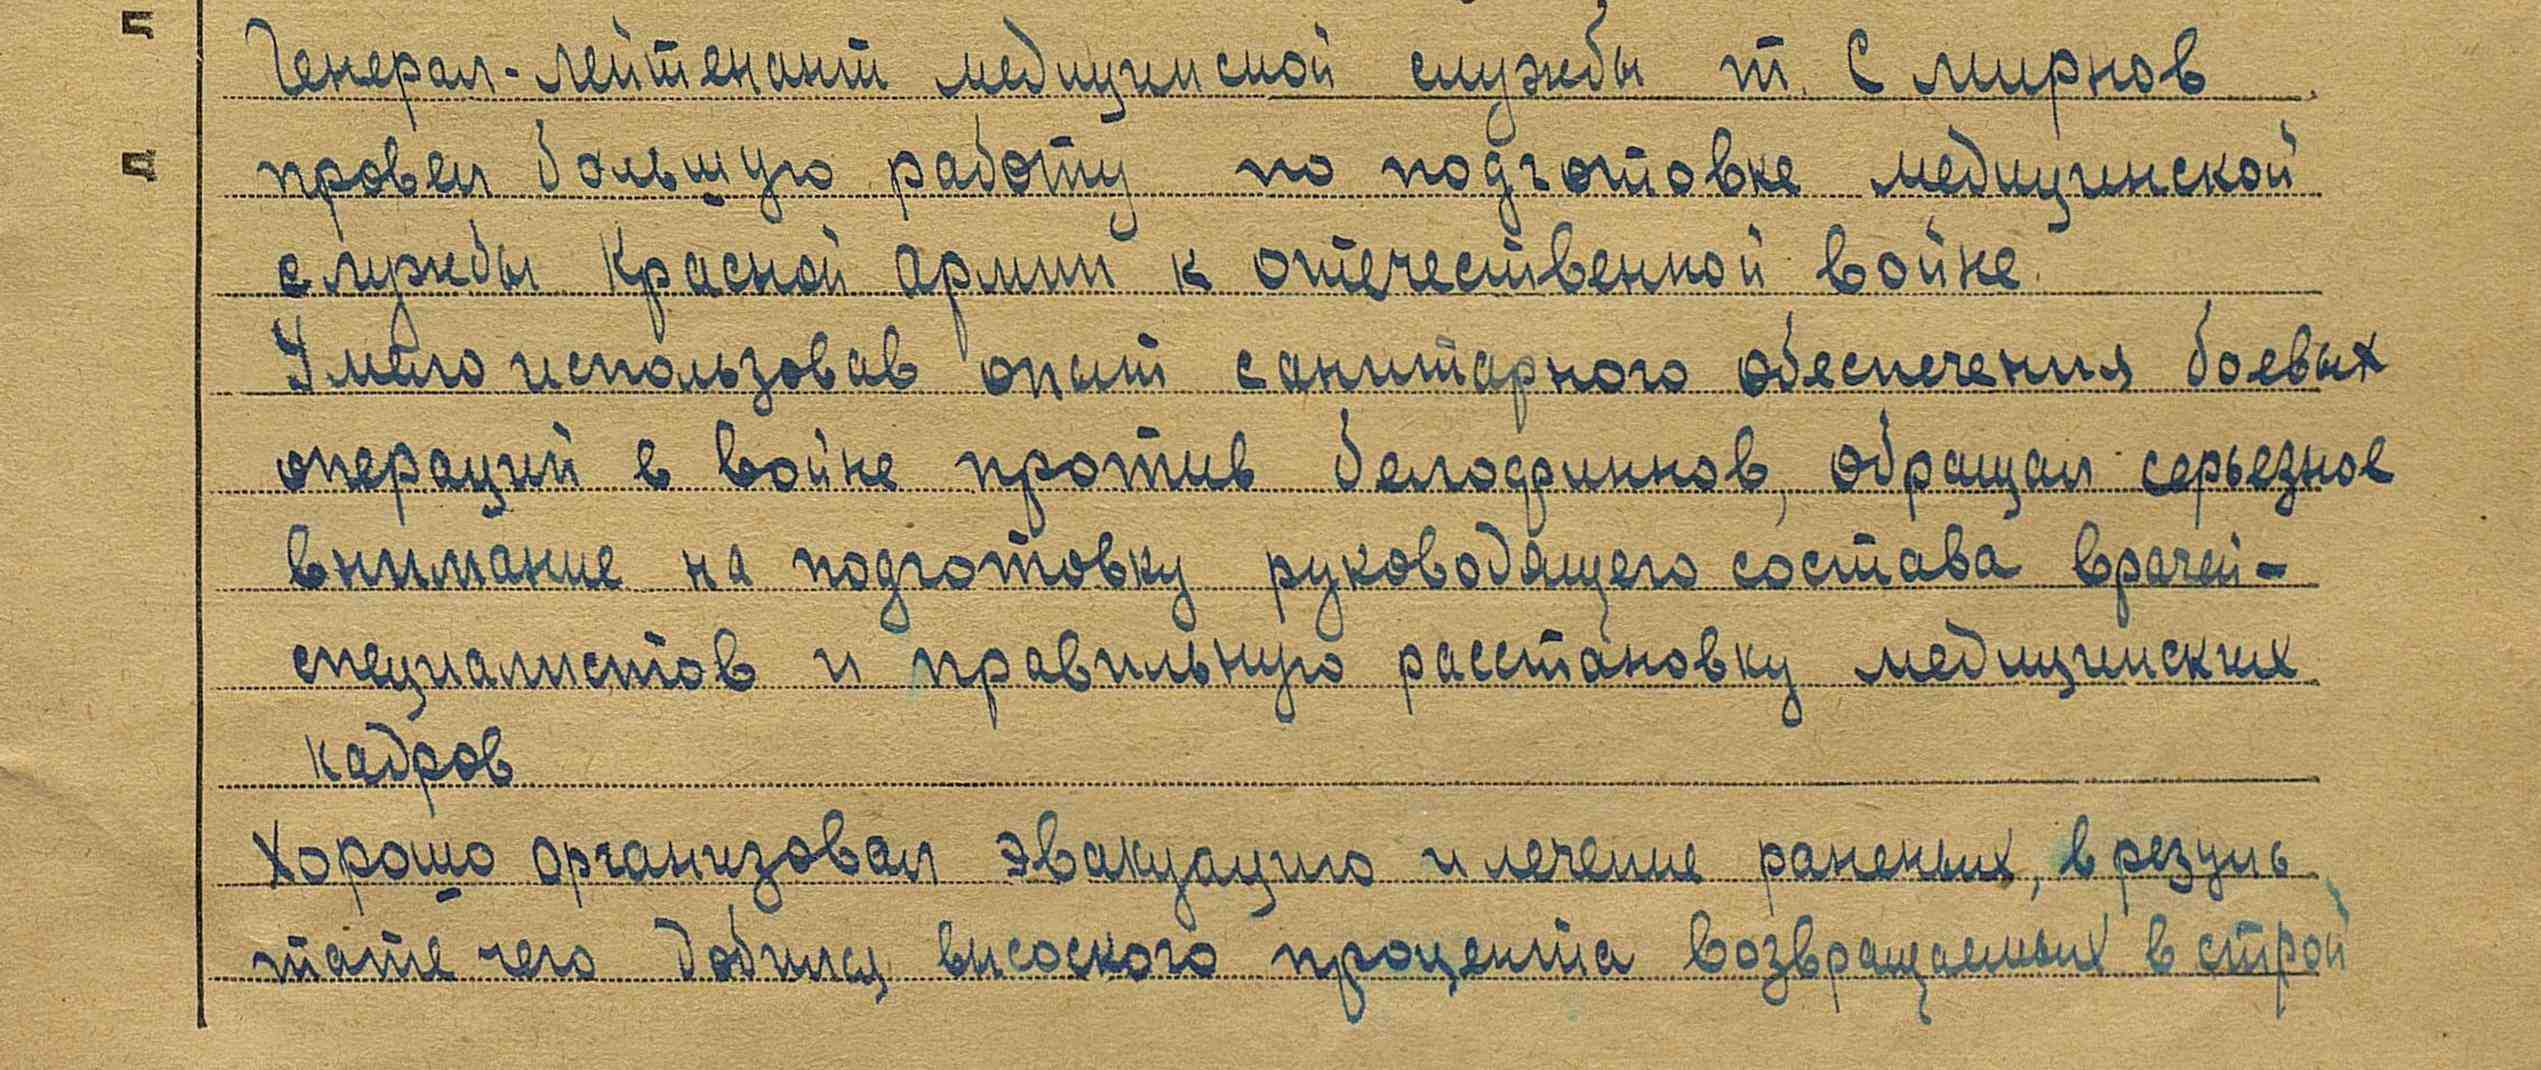 Генерал-лейтенант медицинской службы т. Смирнов
провел большую работу по подготовке медицинской
службы Красной армии к отечественной войне.
Умело использовав опыт санитарного обеспечения боевых
операций в войне против белофиннов, обращал серьезное
внимание на подготовку руководящего состава врачей-
специалистов и правильную расстановку медицинских
кадров
Хорошо организовал эвакуацию и лечение раненых, в резуль
тате чего добился высоского процента возвращаемых в строй